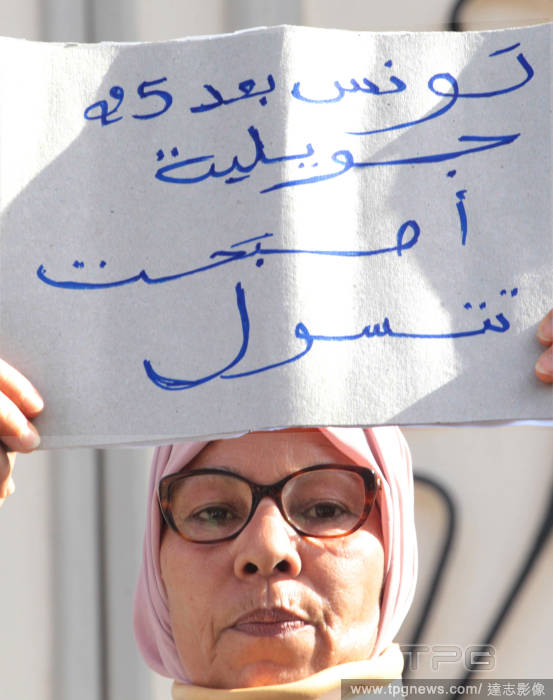 تونس بعد 25
جويلية
أصبحت
تتسول
TPG
www.tpgnews.com/ 達志影像